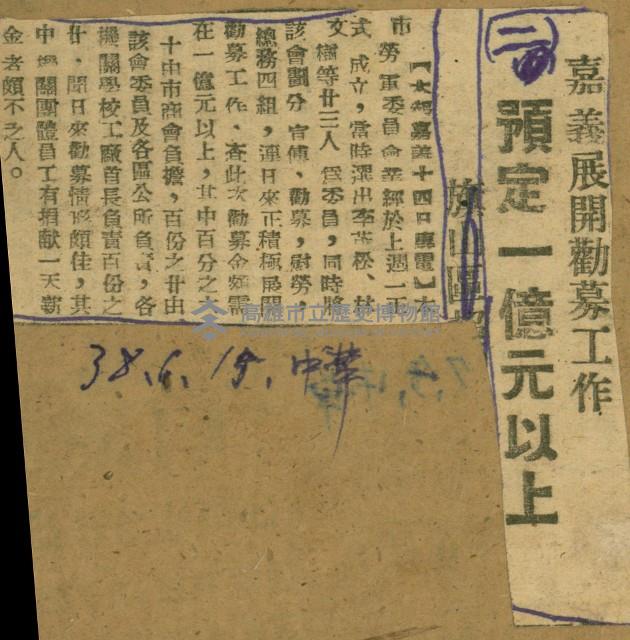 嘉義展開勸募工作
預定一億元以上
二
旗山區
【本報嘉義十四日專電】本
市勞軍委員會業經於上週一正
式成立，當時選出李茂松、林
文樹等廿三人為委員，同時將
該會劃分宣傳、勸募，慰勞，
總務四組，連日來正積極展開
勸募工作，查此次勸募金額需
在一億元以上，其中百分之
十由市商會負擔，百份之廿由
該會委員及各區公所負責，各
機關學校工廠首長負責百份之
廿，聞日來勸募情形頗佳，其
中機關團體員工有捐献一天薪
金者頗不乏人。
高雄市立歷史博物館
38.6.15.中華